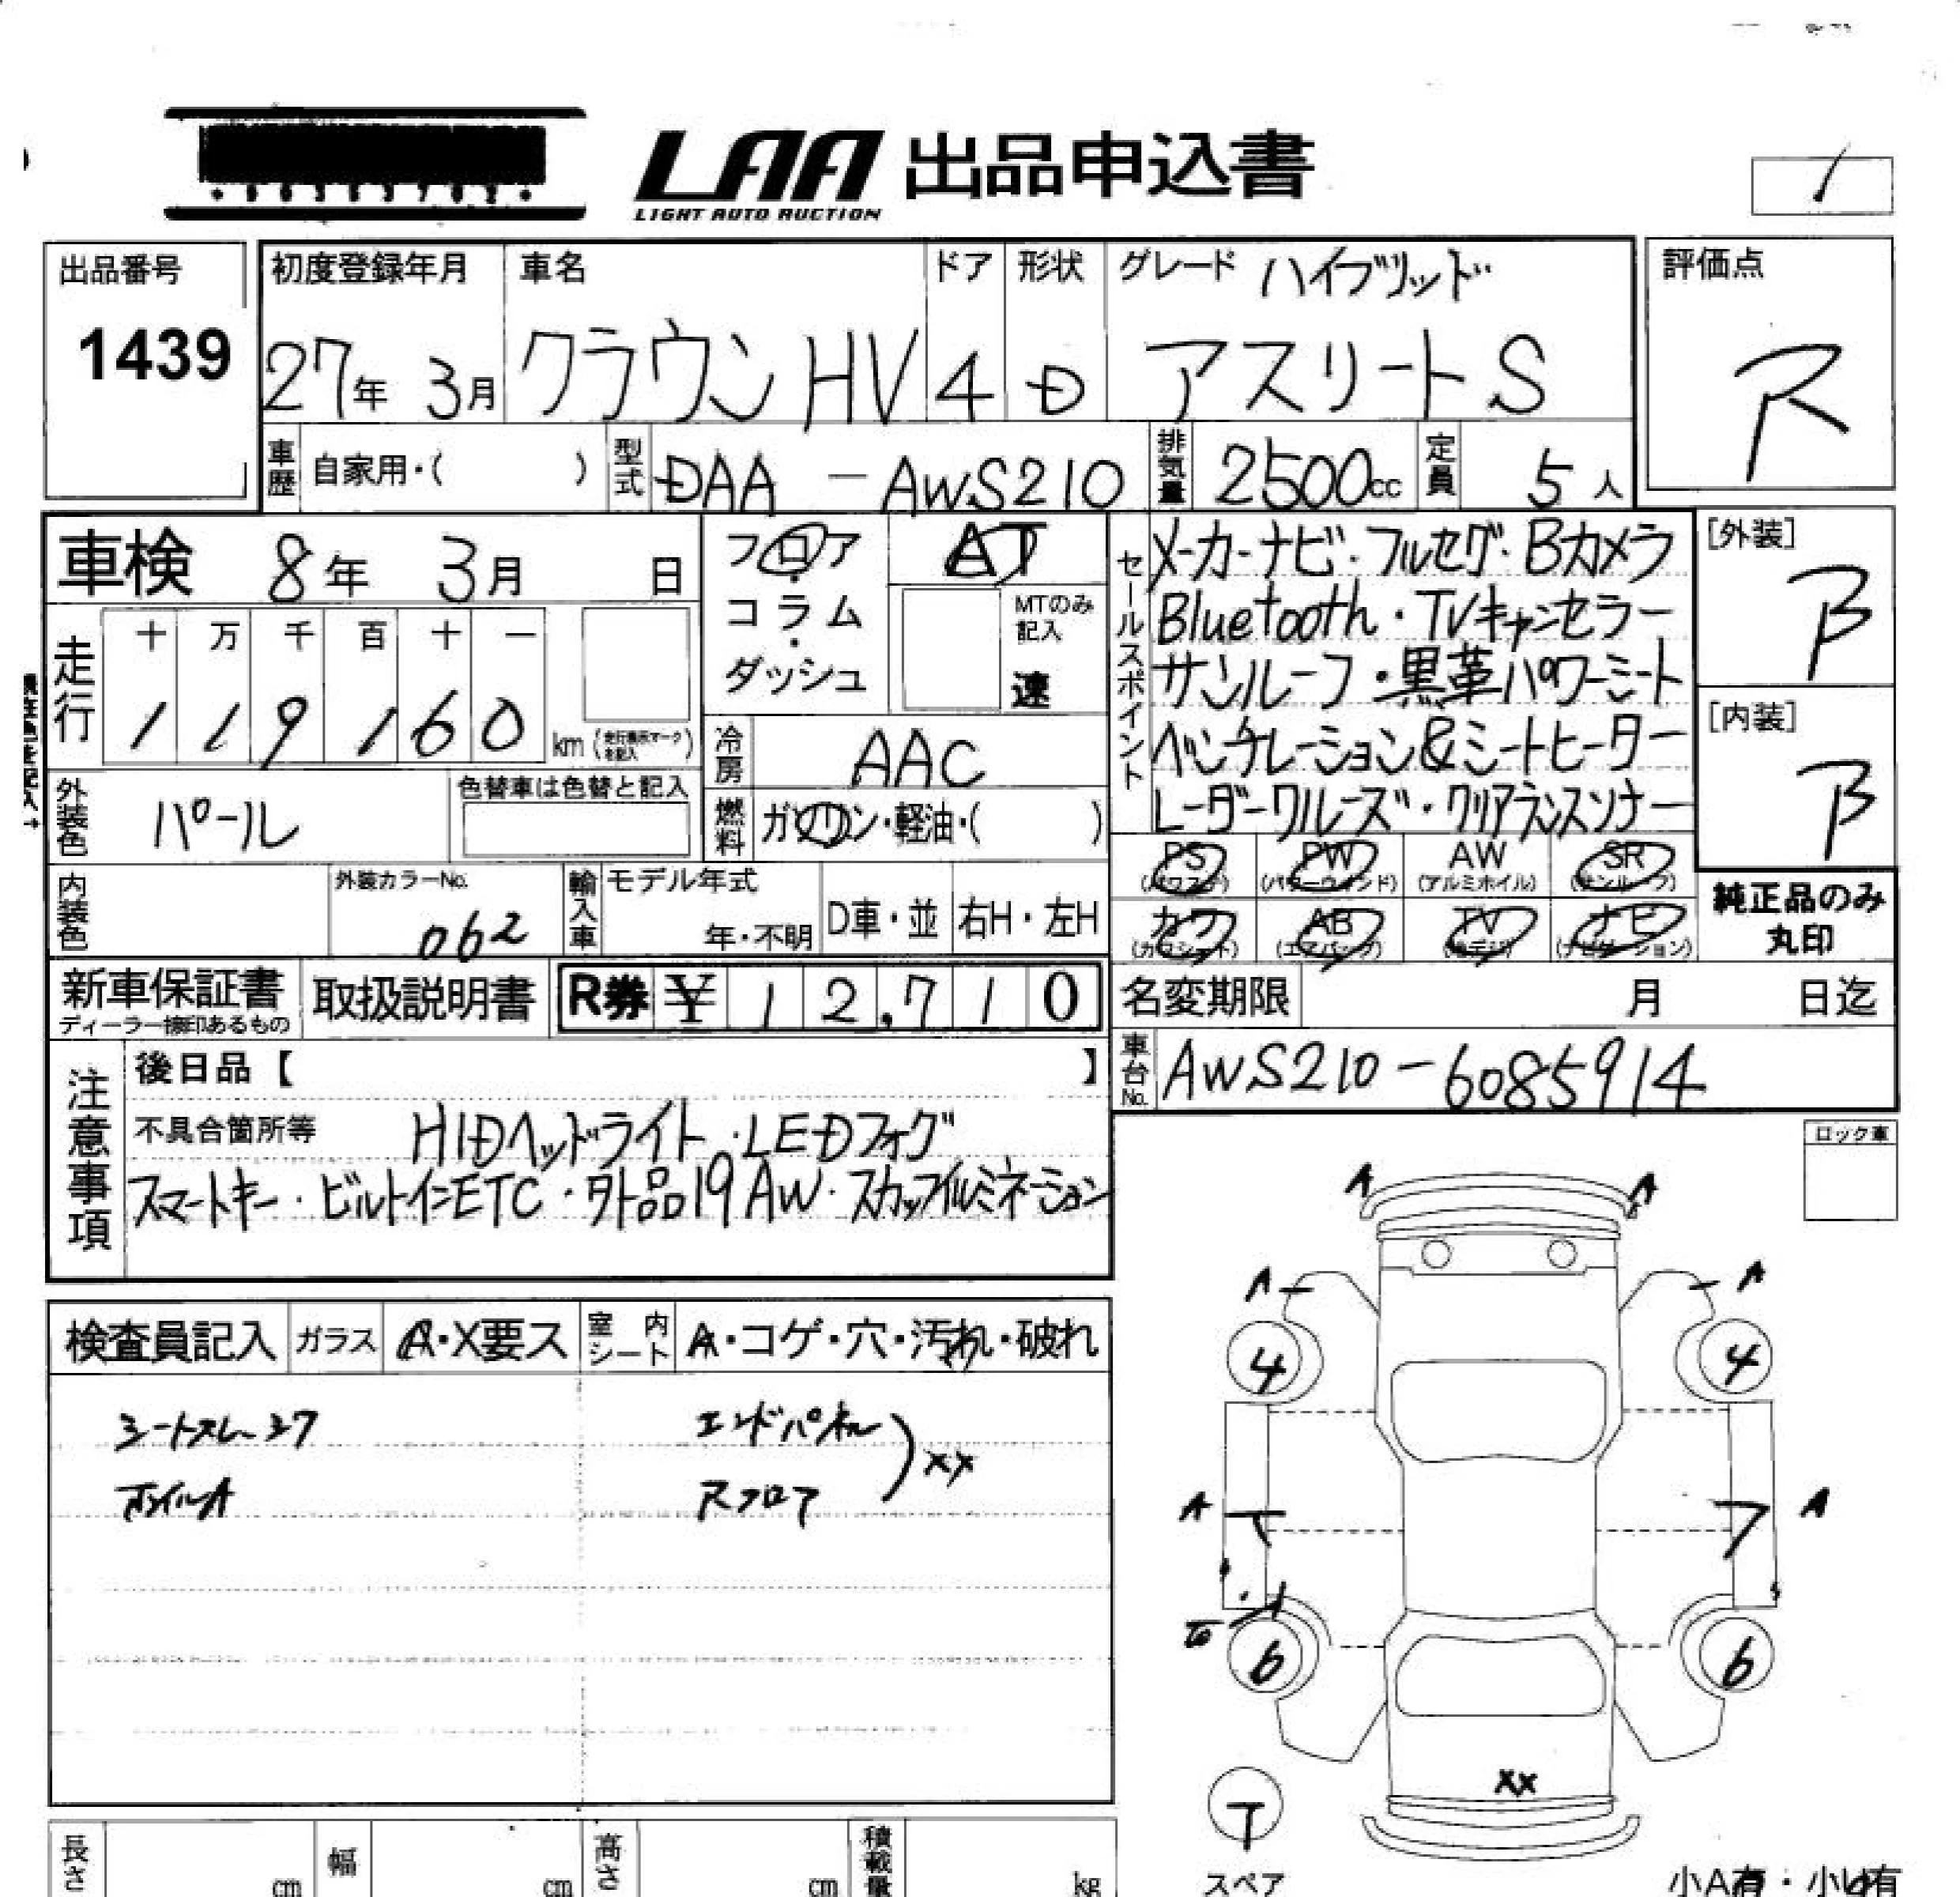 LAA 出品申込書
LIGHT AUTO AUCTION
出品番号
1439
初度登録年月
27年 3月
車名
クラウンHV
ドア
4
形状
D
グレード ハイブリッド
アスリートS
評価点
R
車歴 自家用・( )
型式 DAA-AWS210
排気量 2500cc
定員 5人
車検 8年 3月 日
フロア・コラム・ダッシュ
AT
MTのみ記入
速
セールスポイント
メーカーナビ・フルセグ・Bカメラ
Bluetooth・TVキャンセラー
サンルーフ・黒革パワーシート
ベンチレーション&シートヒーター
レーダークルーズ・クリアランスソナー
[外装]
B
[内装]
B
走行
十 万 千 百 十 一
1 1 9 1 6 0 km (走行表示マークを記入)
冷房 AAC
外装色 パール
色替車は色替と記入
燃料 ガソリン・軽油・( )
内装色
外装カラーNo.
062
輸入車
モデル年式
年・不明
D車・並
右H・左H
PS (パワステ)
PW (パワーウインド)
AW (アルミホイル)
SR (サンルーフ)
カワ (カワシート)
AB (エアバッグ)
TV (地デジ)
ナビ (ナビゲーション)
純正品のみ丸印
新車保証書
ディーラー捺印あるもの
取扱説明書
R券 ¥12,710
名変期限 月 日迄
車台No. AWS210-6085914
注意事項
後日品【 】
不具合箇所等 HIDヘッドライト・LEDフォグ
スマートキー・ビルトインETC・外品19AW・スカッフイルミネーション
ロック車
検査員記入
ガラス A・X要ス
室内シート A・コゲ・穴・汚れ・破れ
シートスレ・シワ
ホイルA
エンドパネル
Rフロア
XX
A A
A A
4 4
A A
6 6
XX
T
スペア
長さ cm
幅 cm
高さ cm
積載量 kg
小A有・小U有